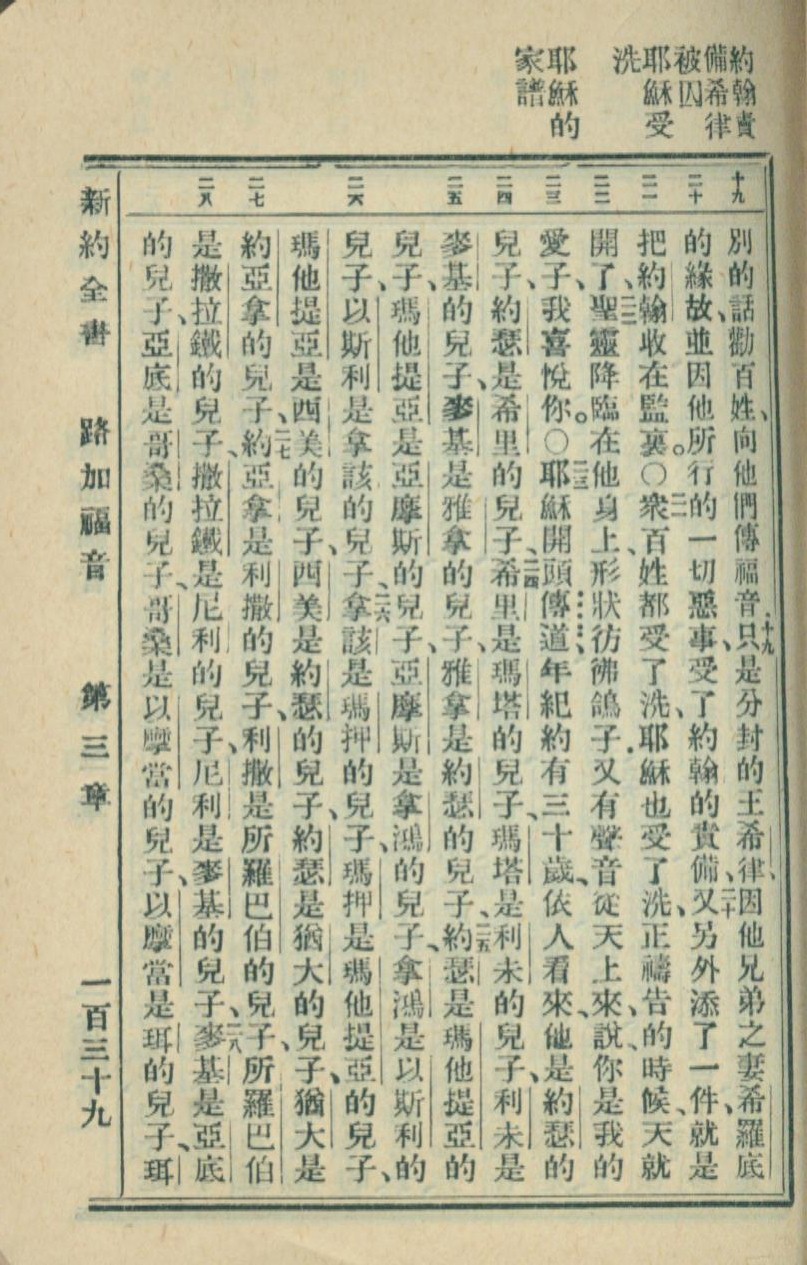 約翰責
備希律
被囚
耶穌受
洗
耶穌的
家譜
十九
二十
二一
二二
二三
二四
二五
二六
二七
二八
別的話勸百姓、向他們傳福音、十九只是分封的王希律、因他兄弟之妻希羅底
的緣故、並因他所行的一切惡事、受了約翰的責備、二十又另外添了一件、就是
把約翰收在監裏。○二一衆百姓都受了洗、耶穌也受了洗、正禱告的時候、天就
開了、二二聖靈降臨在他身上、形狀彷彿鴿子、又有聲音從天上來、說、你是我的
愛子、我喜悅你。○二三耶穌開頭傳道、年紀約有三十歲、依人看來、他是約瑟的
兒子、約瑟是希里的兒子、二四希里是瑪塔的兒子、瑪塔是利未的兒子、利未是
麥基的兒子、麥基是雅拿的兒子、雅拿是約瑟的兒子、二五約瑟是瑪他提亞的
兒子、瑪他提亞是亞摩斯的兒子、亞摩斯是拿鴻的兒子、拿鴻是以斯利的
兒子、以斯利是拿該的兒子、二六拿該是瑪押的兒子、瑪押是瑪他提亞的兒子、
瑪他提亞是西美的兒子、西美是約瑟的兒子、約瑟是猶大的兒子、猶大是
約亞拿的兒子、二七約亞拿是利撒的兒子、利撒是所羅巴伯的兒子、所羅巴伯
是撒拉鐵的兒子、撒拉鐵是尼利的兒子、尼利是麥基的兒子、二八麥基是亞底
的兒子、亞底是哥桑的兒子、哥桑是以摩當的兒子、以摩當是珥的兒子、珥
新約全書 路加福音 第三章 一百三十九